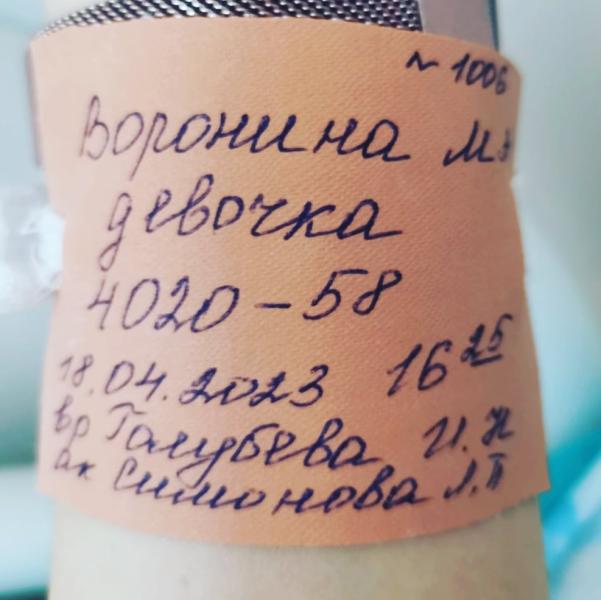 ~ 1006
Воронина М
девочка
4020-58
18.04.2023 16 25
вр Галубева И.Н
ак Симонова Л.П